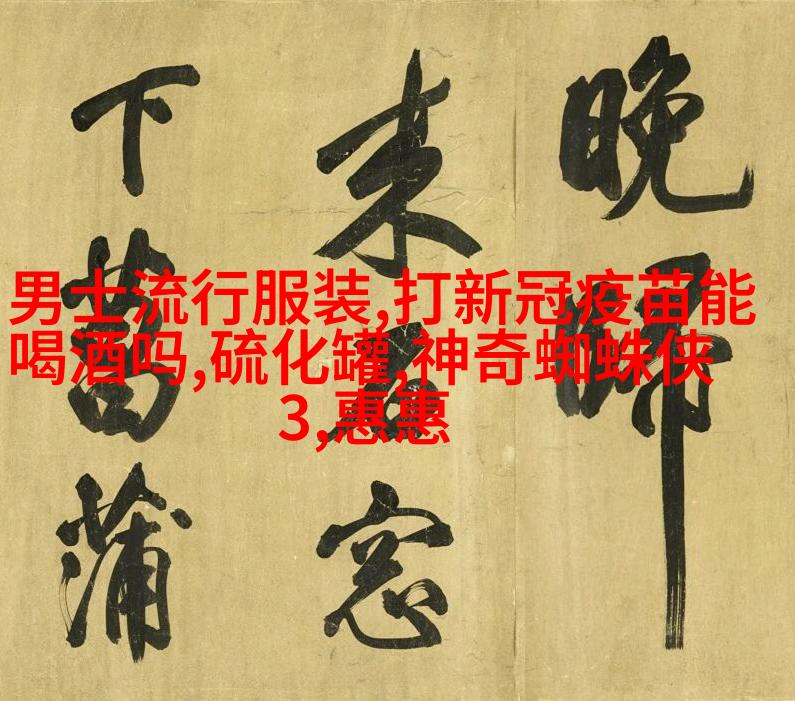 晚帰
来窓
下菖蒲
男士流行服装,打新冠疫苗能
喝酒吗,硫化罐,神奇蜘蛛侠
3,惠惠